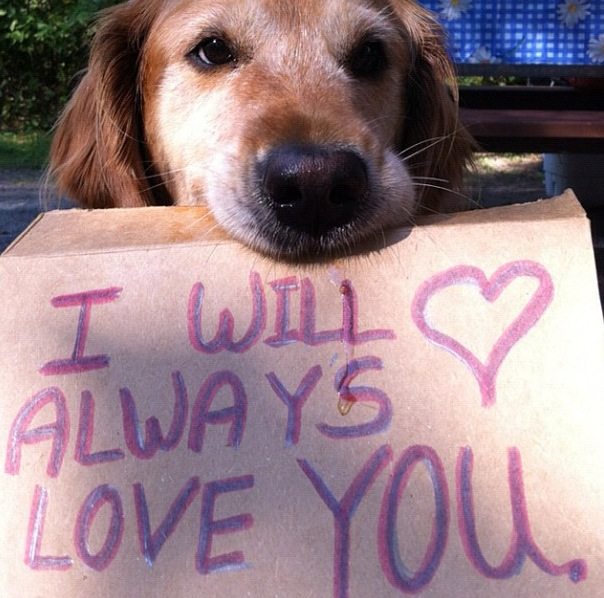 I WILL
ALWAYS
LOVE YOU.